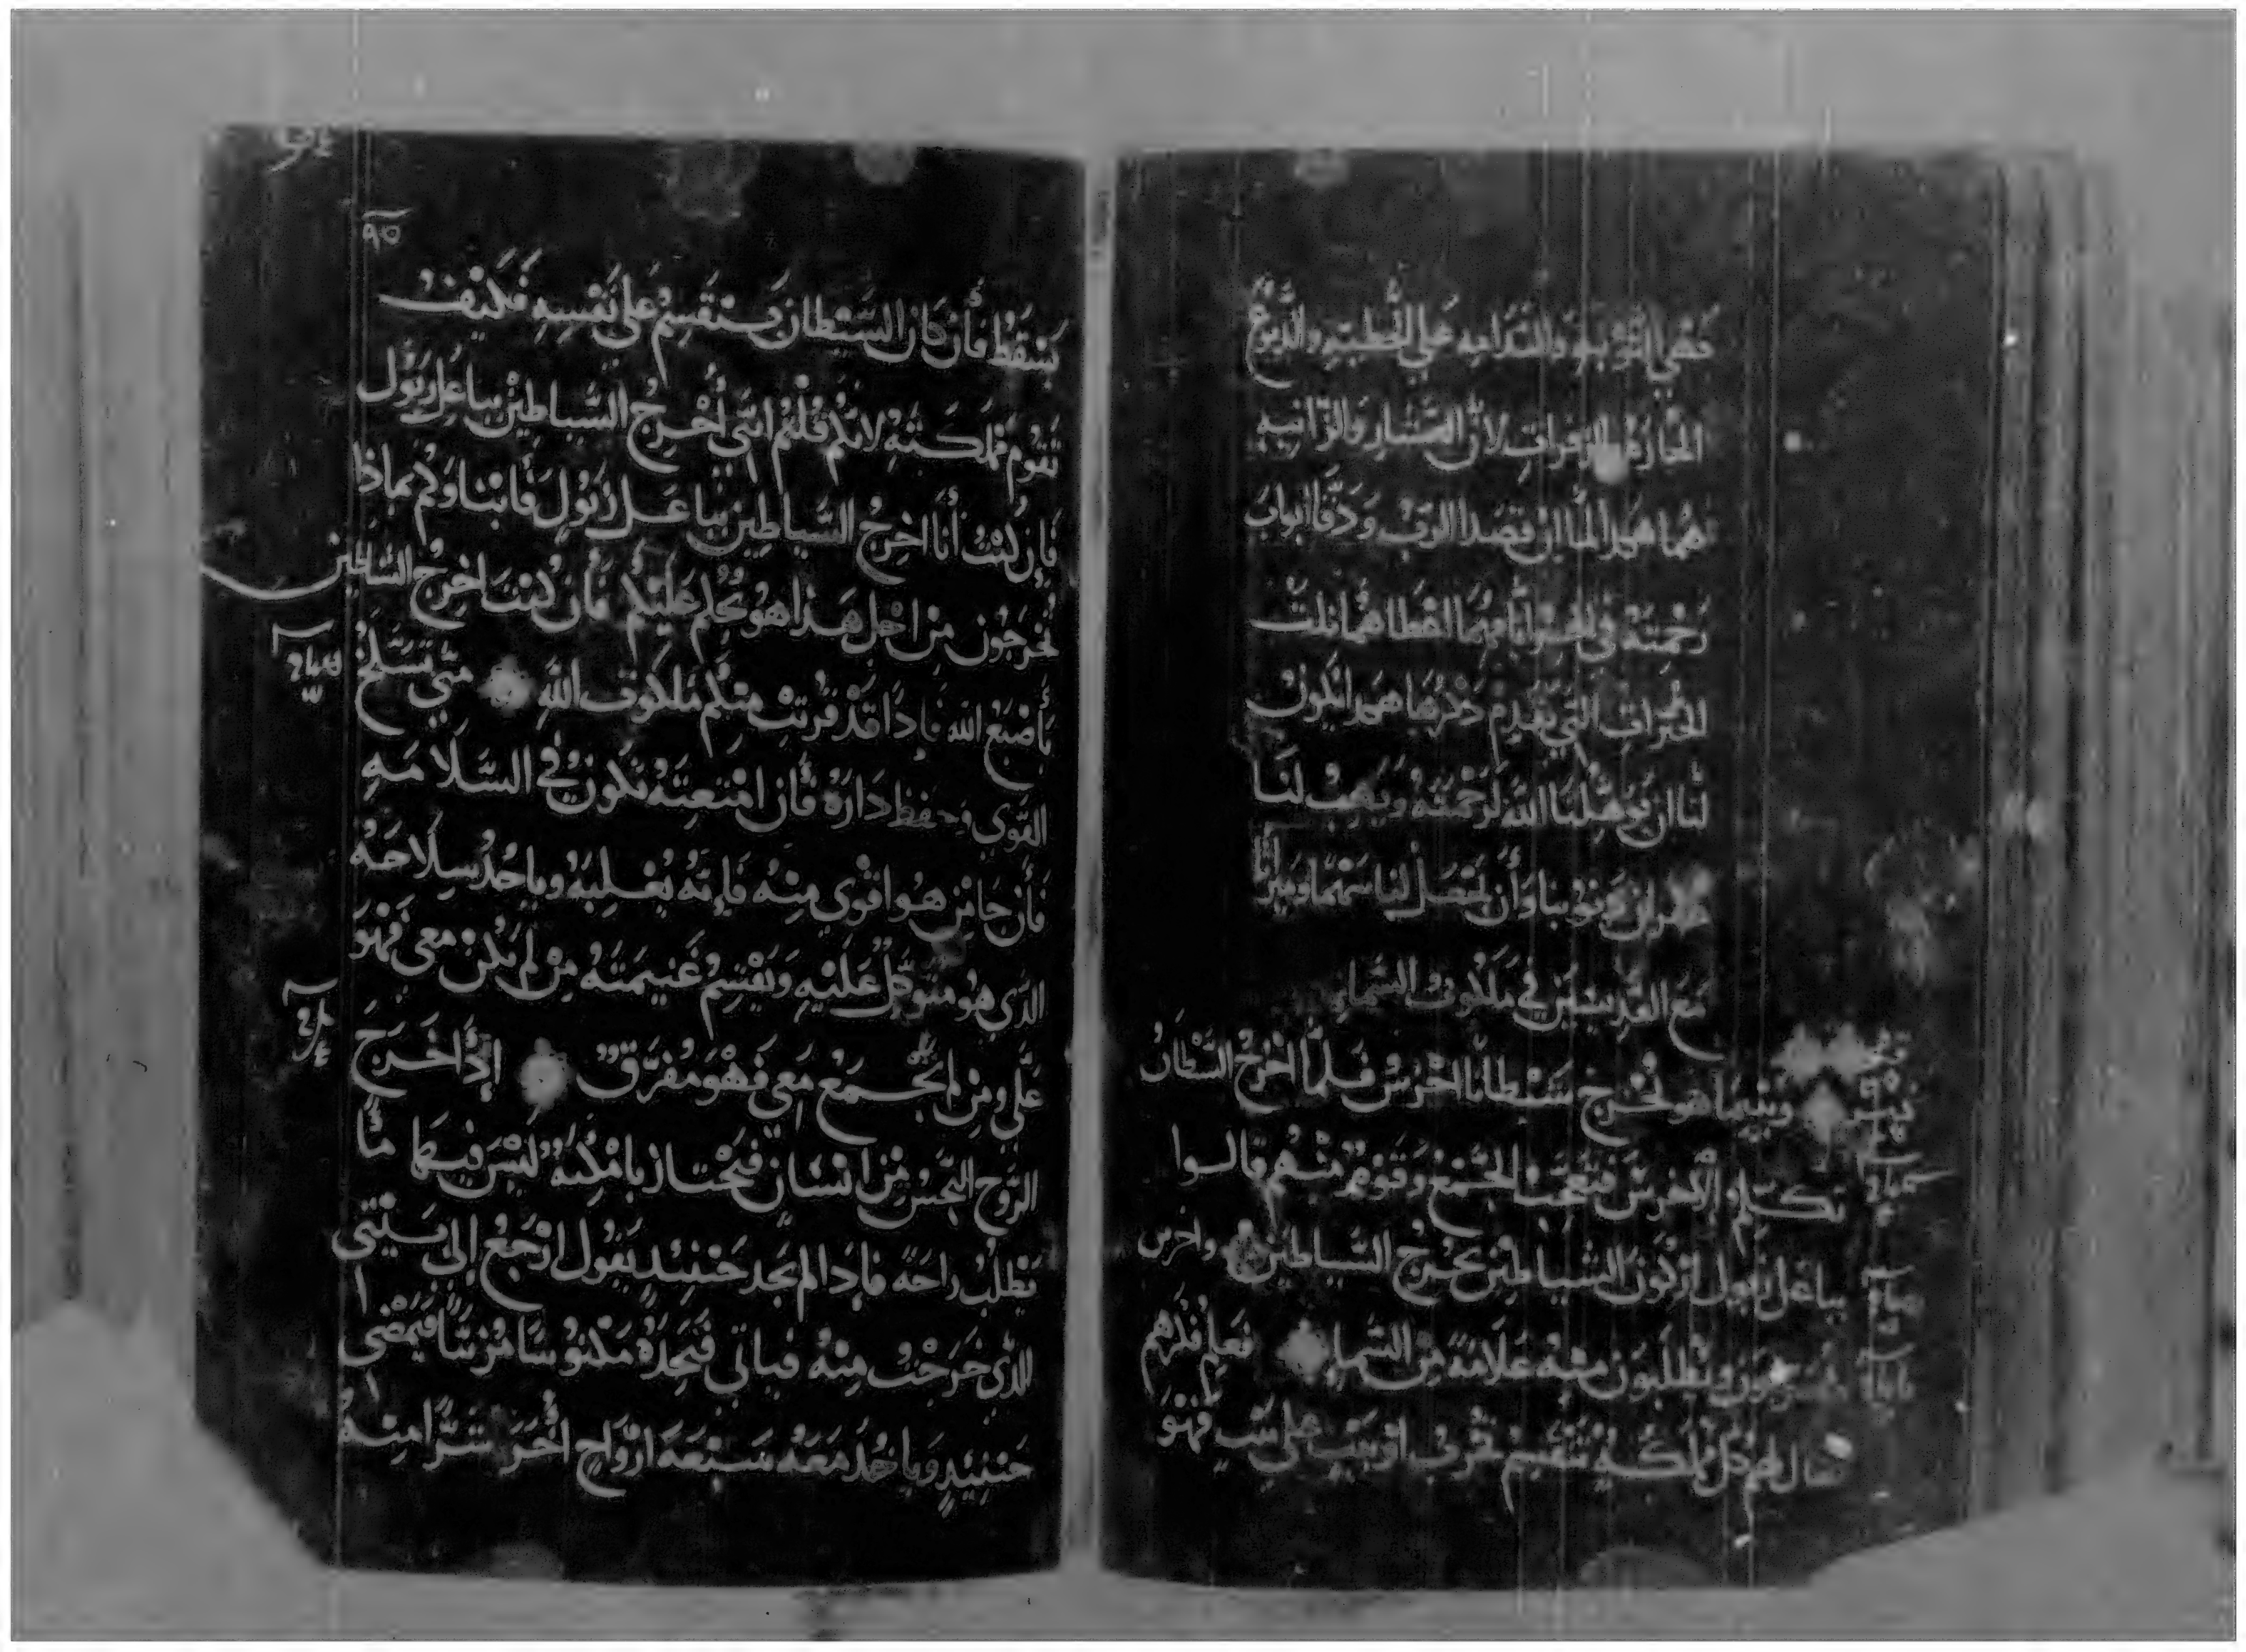 فهي التوبه والندامه علي الخطيه والدموع
الحاره لان العشار والزانيه
هما هدا لما ان قصدا الرب ودقا ابواب
رحمته
الخيرات التي تقدم دكرها
لنا ان يوهلنا الله لرحمته ويهب لنا
غفران دنوبنا وأن يحصل لنا سهما وميراثا
مع القديسين في ملكوت السماء
وبينما هو يخرج شيطانا اخرس فلما اخرج الشطان
تكلم الاخرس فتعجبت الجموع وقوم منهم قالوا
بباعل زبول اركون الشياطين يخرج الشياطين واخرين
يجربون ويطلبون منه علامة من السماء فعلم فكرهم
فقال لهم كل مملكة تنقسم تخرب او بيت على بيت فهو
٩٥
يسقط فأن كان الشيطان ينقسم على نفسه فكيف
تقوم مملكته لانكم قلتم انني أخرج الشياطين بباعل زبول
فإن كنت أنا اخرج الشياطين بباعل زبول فأبناوكم بماذا
يخرجون من اجل هذا هو يحكم عليكم فأن كنت اخرج الشاطين
بأصبع الله فإذا قد قربت منكم ملكوت الله متي تسلح
القوي وحفظ داره فأن امتعته تكون في السلامه
فأن جا من هو اقوي منه فإنه يغلبه وياخد سلاحه
الدي هو متوكل عليه ويقسم غنيمته من لم يكن معي فهو
علي ومن لم يجمع معي فهو مفرق إذا خرج
الروح النجس من انسان فيجتاز بامكنة ليس فيها ما
تطلب راحة فإذا لم يجد حينيد يقول ارجع إلى بيتي
الذي خرجت منه فياتي فيجده مكنوسا مزينا فيمضي
حينيد وياخد معه سبعة ارواح أخر شرا منه